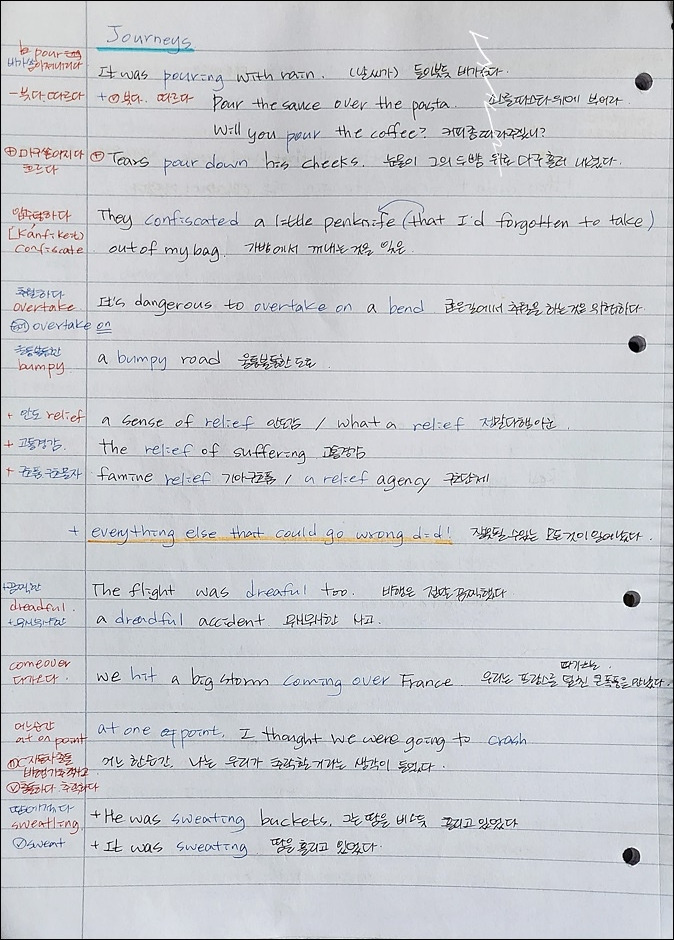 Journeys
+ pour
It was pouring with rain. (날씨가) 들이붓듯 비가오다.
- 붓다. 따르다 + 붓다. 따르다 Pour the sauce over the pasta. 소스를 파스타 위에 부어라
Will you pour the coffee? 커피 좀 따라주겠니?
흐르다 + Tears pour down his cheeks. 눈물이 그의 두뺨 위로 마구 흘러 내렸다.
압수하다 They confiscated a little penknife (that I'd forgotten to take)
confiscate out of my bag. 가방에서 꺼내는 것을 잊은
추월하다
overtake It's dangerous to overtake on a bend 굽은길에서 추월을 하는것은 위험하다
overtake on
울퉁불퉁한 a bumpy road 울퉁불퉁한 도로
bumpy
+ 안도 relief a sense of relief 안도감 / what a relief 정말다행이군
+ 고통경감. the relief of suffering 고통경감
+ 구호품, 구호물자 famine relief 기아구호품 / a relief agency 구호단체
+ everything else that could go wrong did! 잘못될 수있는 모든것이 일어났다.
+ 끔찍한 The flight was dreaful too. 비행은 정말 끔찍했다
dreadful.
+ 무시무시한 a dreadful accident 무시무시한 사고.
come over 다가오는.
다가오다. we hit a big storm coming over France 우리는 프랑스를 덮친 큰폭풍을 만났다.
어느순간 at one point, I thought we were going to crash
at on point
어느 한순간, 나는 우리가 추락할거라는 생각이 들었다.
충돌하다. 추락하다
sweating, + He was sweating buckets. 그는 땀을 비오듯 흘리고 있었다
sweat + It was sweating 땀을 흘리고 있었다.